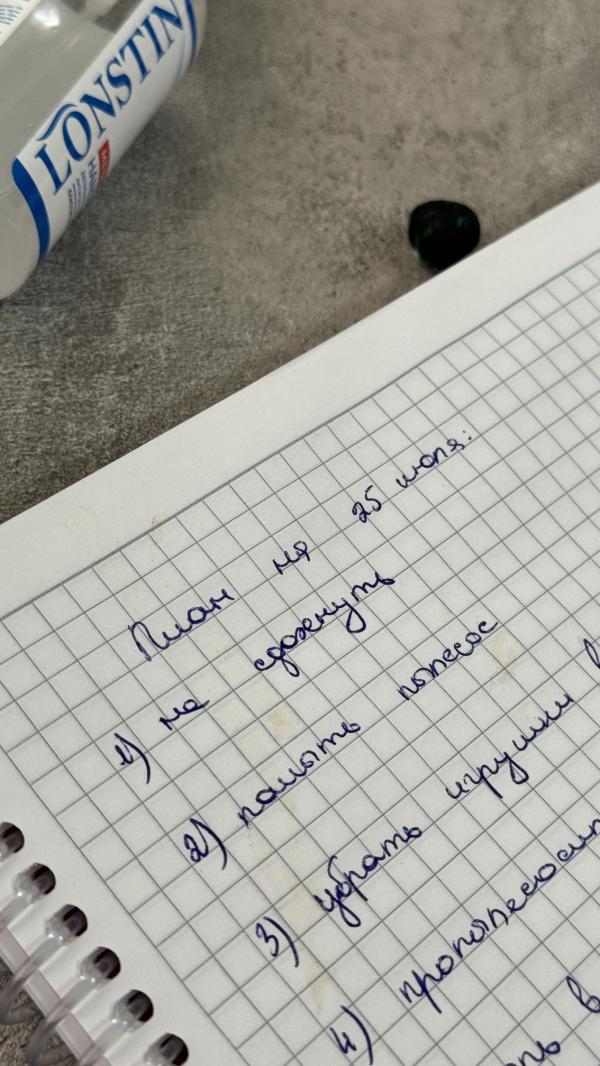 LONSTIN
План на 25 июля:
1) не сдохнуть
2) помыть пылесос
3) убрать игрушки в
4) пропылесосить
в